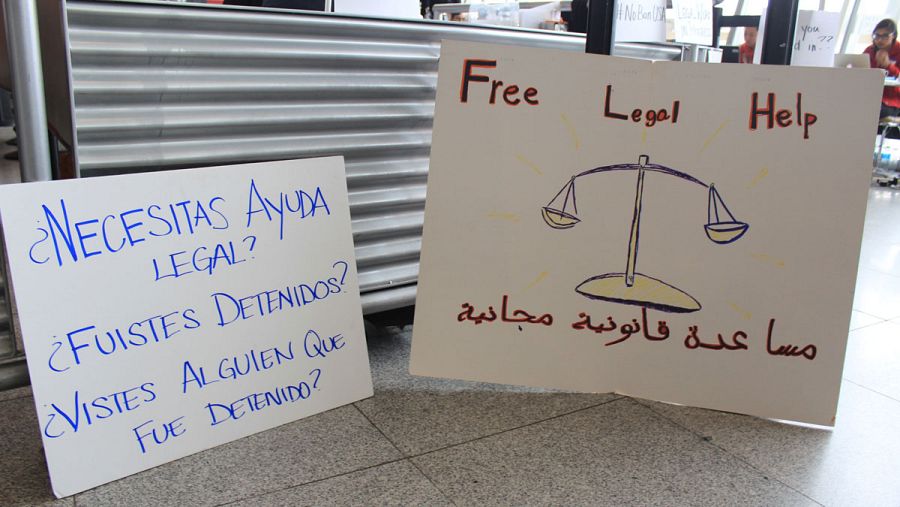 ¿NECESITAS AYUDA
LEGAL?
¿FUISTES DETENIDOS?
¿VISTES ALGUIEN QUE
FUE DETENIDO?
Free Legal Help
مساعدة قانونية مجانية
#NoBanUSA
you
d in..??